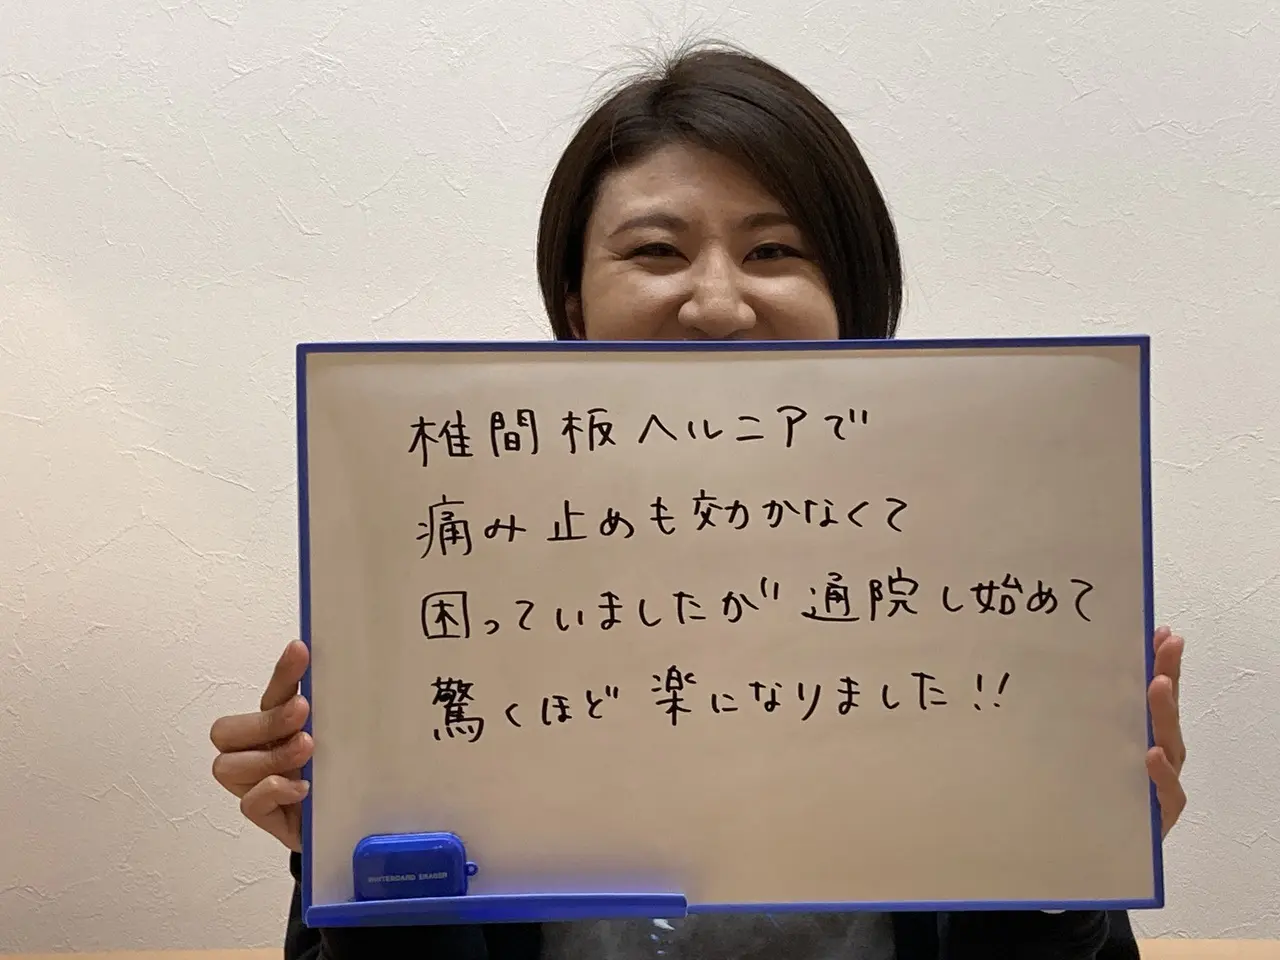 椎間板ヘルニアで
痛み止めも効かなくて
困っていましたが通院し始めて
驚くほど楽になりました!!
WHITEBOARD ERASER